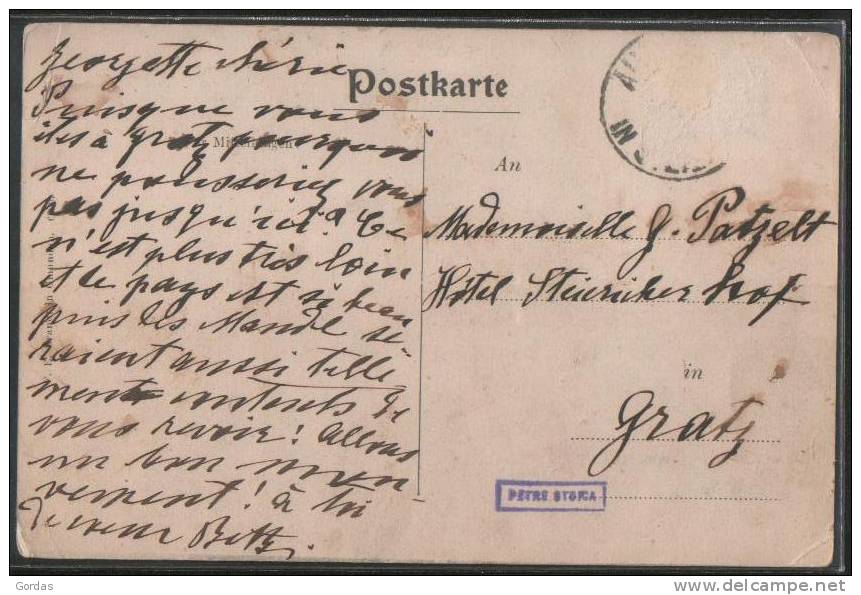 Georgette chérie
Puisque vous
êtes à Gratz pourquoi
ne pousseriez vous
pas jusqu'ici? Ce
n'est plus très loin
et le pays est si beau
puis les Mandl se-
raient aussi telle
ment contents de
vous revoir! Allons
un bon mou
vement! à toi
de cœur Betty.
Postkarte
An
Mademoiselle G. Patzelt
Hôtel Steiricherhof
in
Gratz
PETRE STOICA
Gordas
delcampe.net